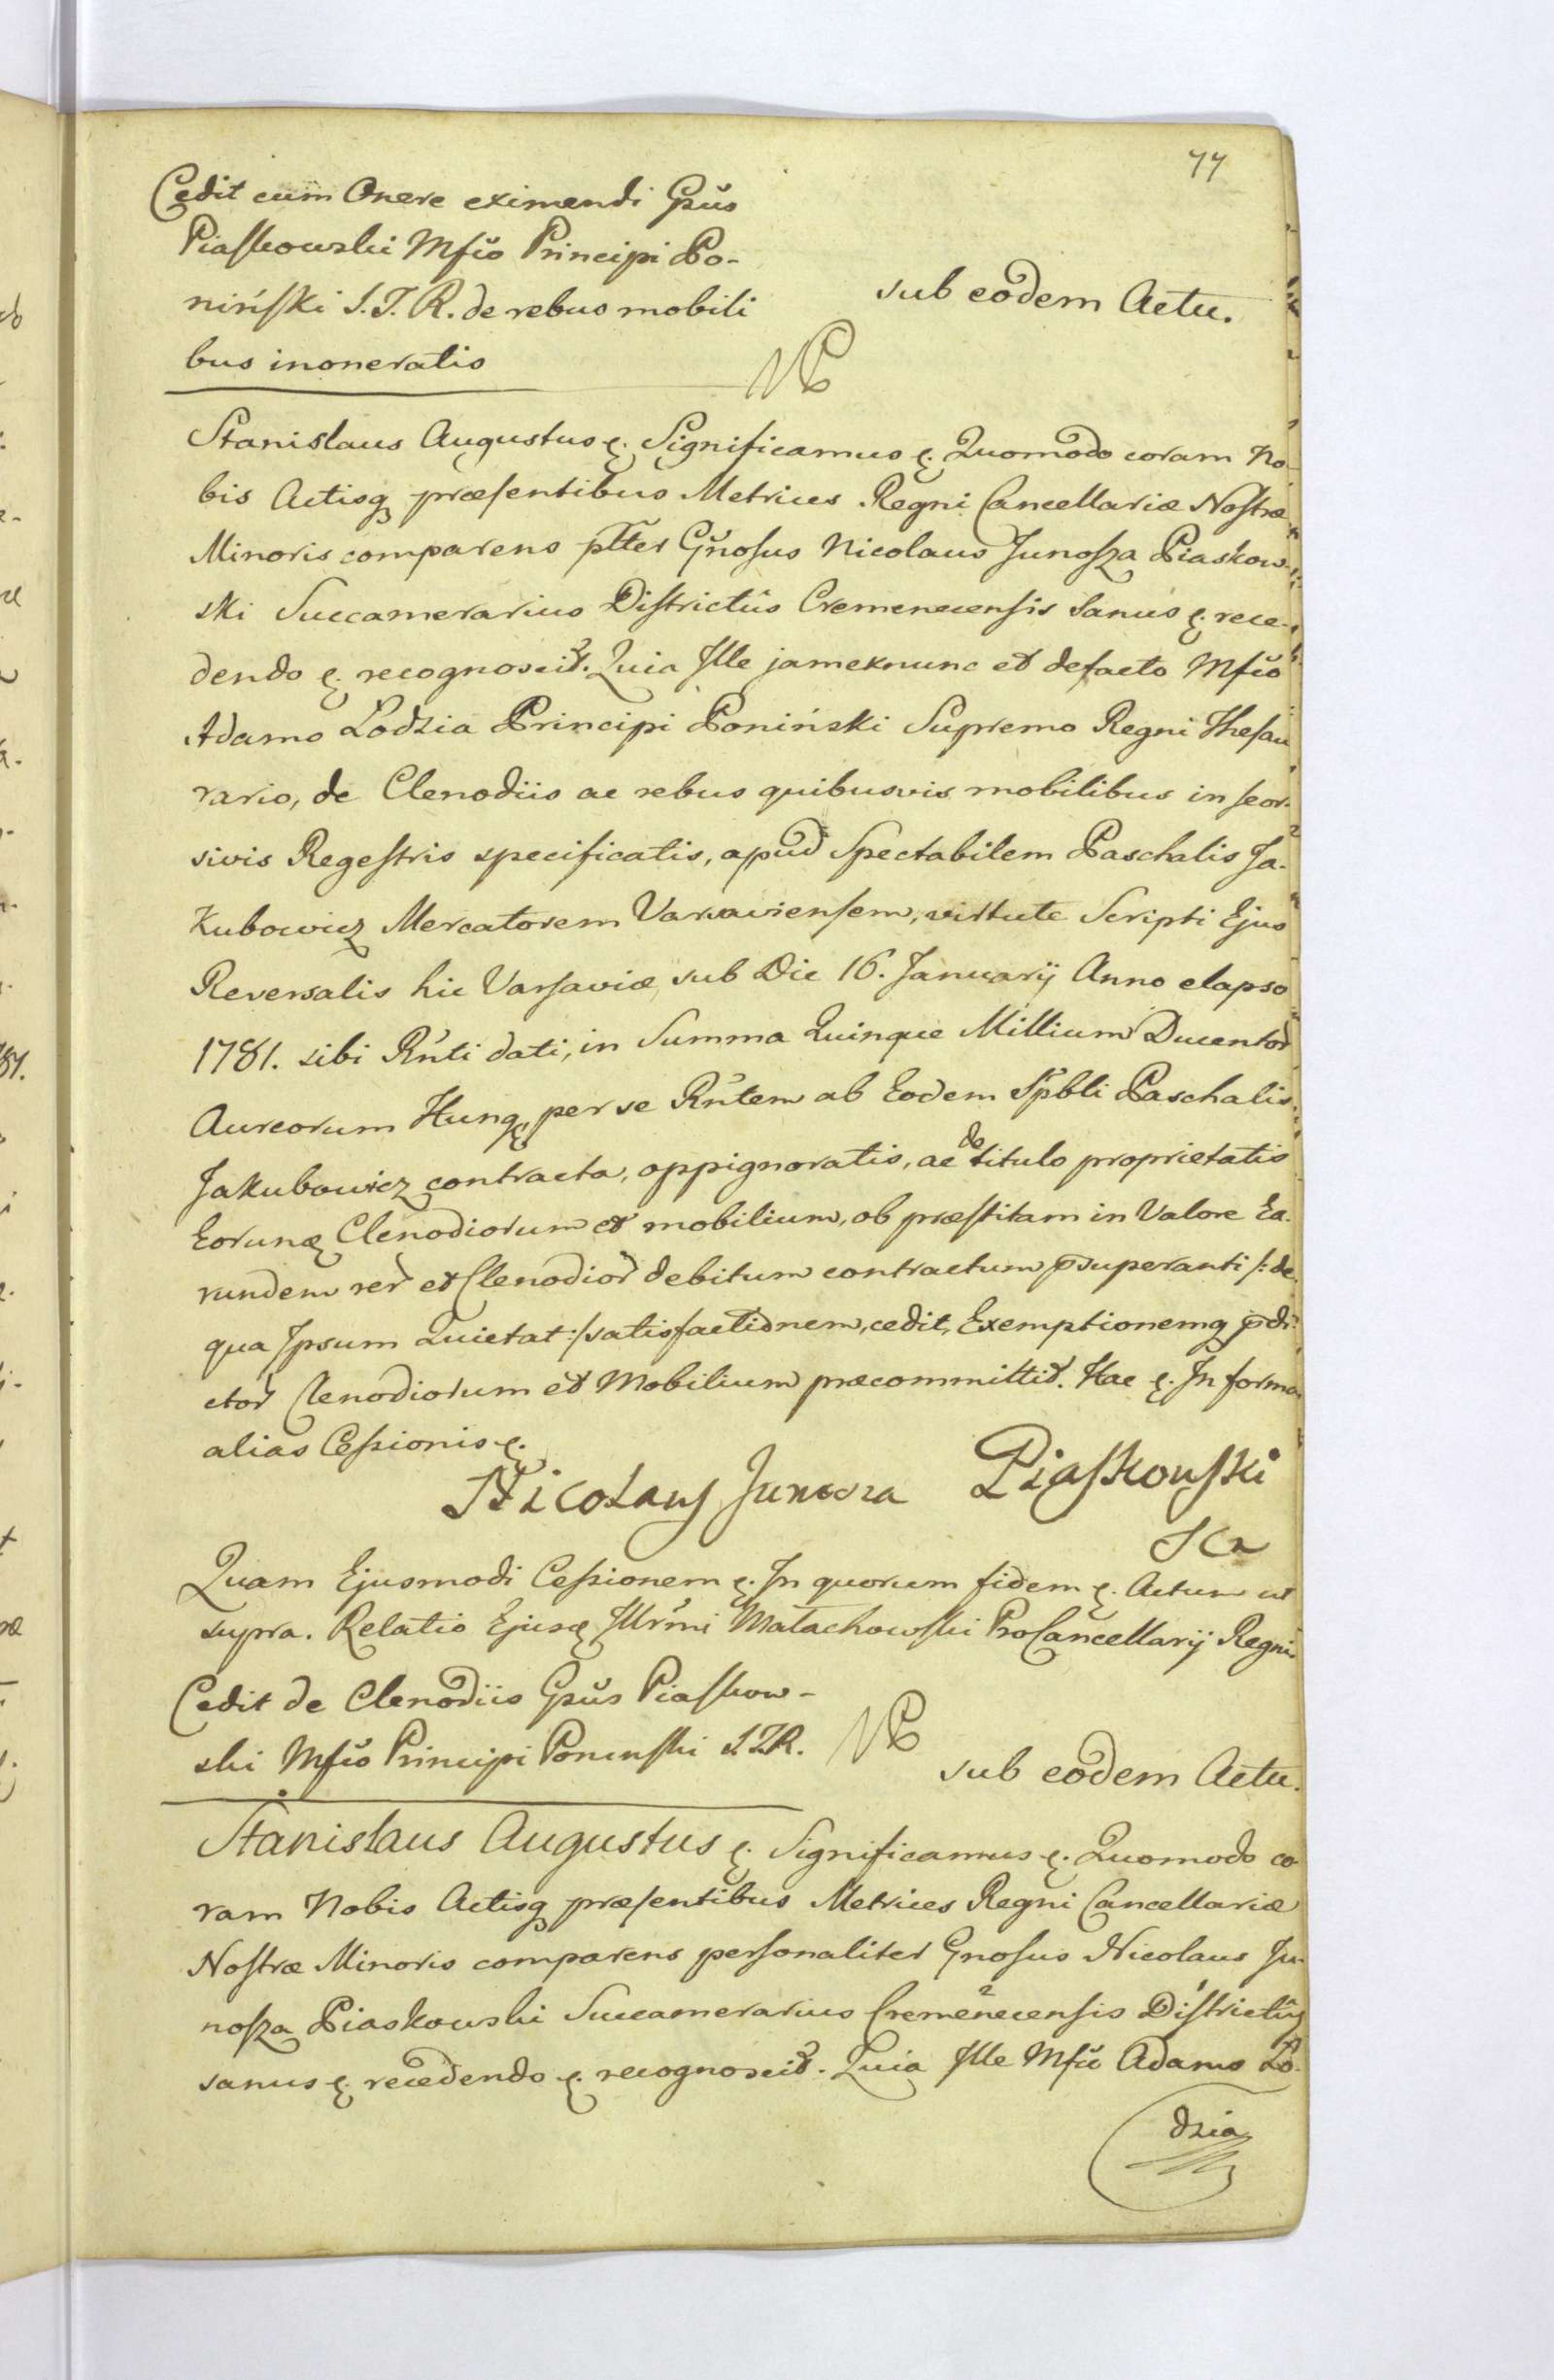 77
Cedit cum Onere eximendi Gnus
Piaskowski Mfco Principi Po-
niński S. T. R. de rebus mobili
bus inoneratis
sub eodem Actu.
Stanislaus Augustus &. Significamus &. Quomodo coram No-
bis Actisq præsentibus Metrices Regni Cancellariæ Nostræ
Minoris comparens plter Gnosus Nicolaus Junosza Piaskow-
ski Succamerarius Districtûs Cremenecensis sanus &. rece-
dendo &. recognoscit. Quia Ille jam ex nunc et de facto Mfco
Adamo Lodzia Principi Poniński Supremo Regni Thesau
rario, de Clenodiis ac rebus quibusvis mobilibus in seor-
sivis Regestris specificatis, apud Spectabilem Paschalis Ja-
kubowicz Mercatorem Varsaviensem, virtute Scripti Ejus
Reversalis hic Varsaviæ sub Die 16. Januarij Anno elapso
1781. sibi Rnti dati, in Summa Quinque Millium Ducentor
Aureorum Hung, per se Rntem ab Eodem Spbli Paschalis
Jakubowicz contracta, oppignoratis, ac de titulo proprietatis
Eorunq Clenodiorum et mobilium, ob præstitam in Valore Ea-
rundem rer et Clenodior debitum contractum p̄superanti /: de
qua Ipsum Quietat :/ satisfactionem, cedit, Exemptionemq p̄di-
ctor Clenodiorum et Mobilium præcommittit. Hac &. In forma
alias Cessionis &.
Nicolaus Junosza Piaskowski
Quam Ejusmodi Cessionem &. In quorum fidem &. Actum ut
supra. Relatio Ejusq Illrmi Małachowski ProCancellarij Regni
Cedit de Clenodiis Gnus Piaskow-
ski Mfco Principi Poninski S T R.
sub eodem Actu.
Stanislaus Augustus &. Significamus &. Quomodo co-
ram Nobis Actisq præsentibus Metrices Regni Cancellariæ
Nostræ Minoris comparens personaliter Gnosus Nicolaus Ju-
nosza Piaskowski Succamerarius Cremenecensis Districtûs
sanus &. recedendo &. recognoscit. Quia Ille Mfco Adamo Lo-
dzia